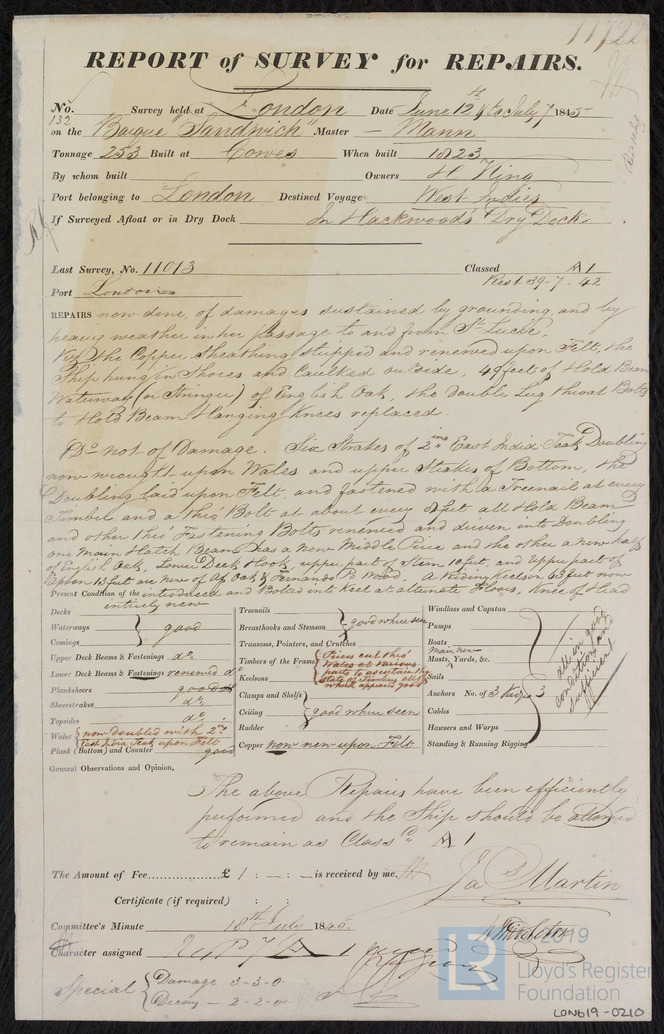 11722
REPORT of SURVEY for REPAIRS.
No. 132 Survey held at London Date June 12th to July 7 1845
on the Barque "Sandwich" Master Mann
Tonnage 253 Built at Cowes When built 1823
By whom built Owners H King
Port belonging to London Destined Voyage West Indies
If Surveyed Afloat or in Dry Dock In Hackwood's Dry Dock
Last Survey, No. 11013 Classed A 1
Port London Rest. 39-7.42
REPAIRS now done, of damages sustained by grounding and by
heavy weather in her passage to and from St Lucie.
Viz. The Copper Sheathing stripped and renewed upon Felt, the
Ship hung in Shores and Caulked outside, 49 feet of Hold Beam
Waterway (or Stringer) of English Oak, the double Lug throat Bolts
to Hold Beam Hanging Knees replaced.
Do not of Damage. Six Strakes of 2 ins East India Teak Doubling
now wrought upon Wales and upper Strakes of Bottom, the
Doubling laid upon Felt, and fastened with a Treenail at every
Timber and a thro' Bolt at about every feet all Hold Beam
and other thro' Fastening Bolts renewed and driven into Doubling
one Main Hatch Beam has a new Middle Piece and the other a new half
of English Oak, Lower Deck Hook, upper part of Stem 10 feet, and Upper part of
Apron 13 feet are new of Af. Oak & Fernando Po Wood, A Riding Keelson 63 feet now
introduced and Bolted into Keel at alternate Floors, Knee of Head
entirely new
Present Condition of the
Decks
Waterways
Comings
good
Upper Deck Beams & Fastenings do.
Lower Deck Beams & Fastenings renewed
Planksheers good
Sheerstrakes do.
Topsides do.
Wales now doubled with 2 in East India Teak upon Felt
Plank (Bottom) and Counter good
Treenails
Breasthooks and Stemson
good when seen
Transoms, Pointers, and Crutches
Timbers of the Frame
Keelsons
Pieces cut thro' Wales at various parts to ascertain the state of Timbers all of which appeared good
Clamps and Shelfs
Ceiling
Rudder
good when seen
Copper now new upon Felt
Windlass and Capstan
Pumps
Boats
Main new
Masts, Yards, &c.
Sails
Anchors No. of 3 Kedges 3
Cables
Hawsers and Warps
Standing & Running Rigging
all in good condition and sufficient
General Observations and Opinion,
The above Repairs have been efficiently
performed and the Ship should be allowed
to remain as Classd A 1
The Amount of Fee £ 1 : - : - is received by me,
Jas Martin
Certificate (if required) : :
Committee's Minute 18th July 1845
Character assigned A 1
Special Damage 3-3-0
Decay - 2-2-0
LR
© 2019
Lloyd's Register
Foundation
LON619-0210